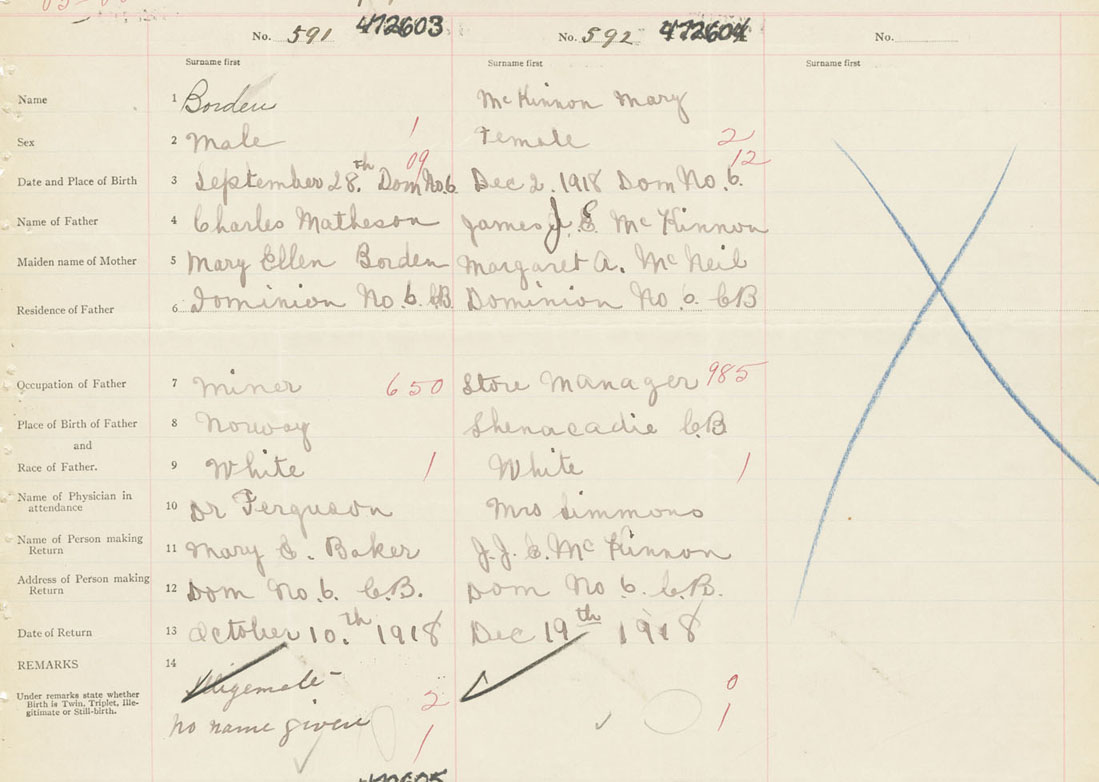 No. 591 472603 No. 592 472604 No.
Surname first Surname first Surname first
Name 1 Borden McKinnon Mary
Sex 2 Male 1 Female 2
Date and Place of Birth 3 September 28.th Dom No. 6 09 Dec 2. 1918 Dom No. 6. 12
Name of Father 4 Charles Matheson James J. E. McKinnon
Maiden name of Mother 5 Mary Ellen Borden Margaret A. McNeil
Residence of Father 6 Dominion No. 6. CB. Dominion No 6 CB
Occupation of Father 7 Miner 650 Store Manager 985
Place of Birth of Father 8 Norway Shenacadie C.B
and
Race of Father. 9 White 1 White 1
Name of Physician in
attendance 10 Dr Ferguson Mrs Simmons
Name of Person making
Return 11 Mary E. Baker J.J. E. McKinnon
Address of Person making
Return 12 Dom No. 6. C.B. Dom No 6. C.B.
Date of Return 13 October 10.th 1918 Dec 19th 1918
REMARKS 14
Under remarks state whether
Birth is Twin, Triplet, Ille-
gitimate or Still-birth.
2 0
no name given 1 1
472605